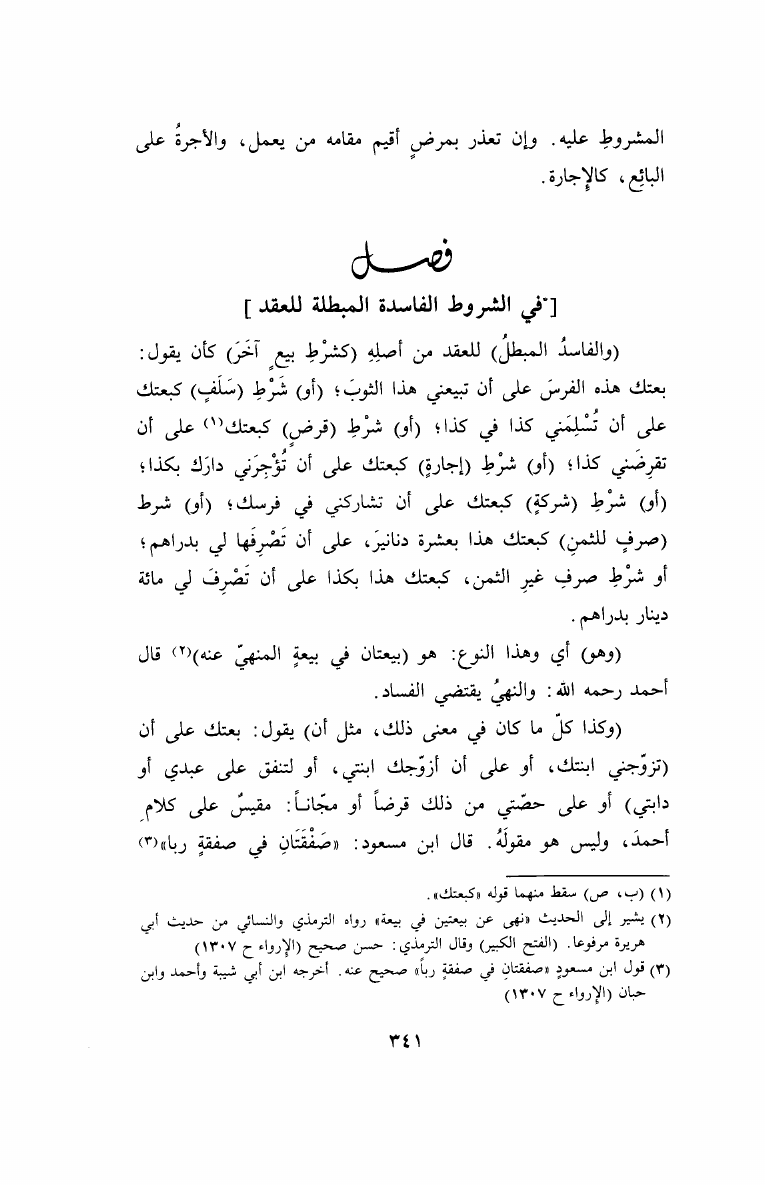 المشروطِ عليه. وإن تعذر بمرضٍ أقيم مقامه من يعمل، والأجرةُ على
البائِع، كالإِجارة.
فصل
[في الشروط الفاسدة المبطلة للعقد]
(والفاسدُ المبطلُ) للعقد من أصلِهِ (كشرْطِ بيعٍ آخَرَ) كأن يقول:
بعتك هذه الفرسَ على أن تبيعني هذا الثوبَ؛ (أو) شَرْطِ (سَلَفٍ) كبعتك
على أن تُسْلِمَني كذا في كذا؛ (أو) شرْطِ (قرضٍ) كبعتك(١) على أن
تقرضَني كذا؛ (أو) شرْطِ (إجارةٍ) كبعتك على أن تُؤْجِرَني دارَك بكذا؛
(أو) شرْطِ (شركةٍ) كبعتك على أن تشاركني في فرسك؛ (أو) شرط
(صرفٍ للثمنِ) كبعتك هذا بعشرة دنانيرَ، على أن تَصْرِفَها لي بدراهم؛
أو شرْطِ صرفِ غيرِ الثمن، كبعتك هذا بكذا على أن تَصْرِفَ لي مائة
دينار بدراهم.
(وهو) أي وهذا النوع: هو (بيعتان في بيعةٍ المنهيّ عنه)(٢) قال
أحمد رحمه الله: والنهيُ يقتضي الفساد.
(وكذا كلّ ما كان في معنى ذلك، مثل أن) يقول: بعتك على أن
(تزوّجني ابنتك، أو على أن أزوّجك ابنتي، أو لتنفق على عبدي أو
دابتي) أو على حصّتي من ذلك قرضاً أو مجّاناً: مقيسٌ على كلامِ
أحمدَ، وليس هو مقولَهُ. قال ابن مسعود: «صَفْقَتَانِ في صفقةٍ ربا»(٣)
(١) (ب، ص) سقط منهما قوله «كبعتك».
(٢) يشير إلى الحديث «نهى عن بيعتين في بيعة» رواه الترمذي والنسائي من حديث أبي
هريرة مرفوعا. (الفتح الكبير) وقال الترمذي: حسن صحيح (الإرواء ح ١٣٠٧)
(٣) قول ابن مسعودٍ «صفقتانِ في صفقةٍ رباً» صحيح عنه. أخرجه ابن أبي شيبة وأحمد وابن
حبان (الإرواء ح ١٣٠٧)
٣٤١